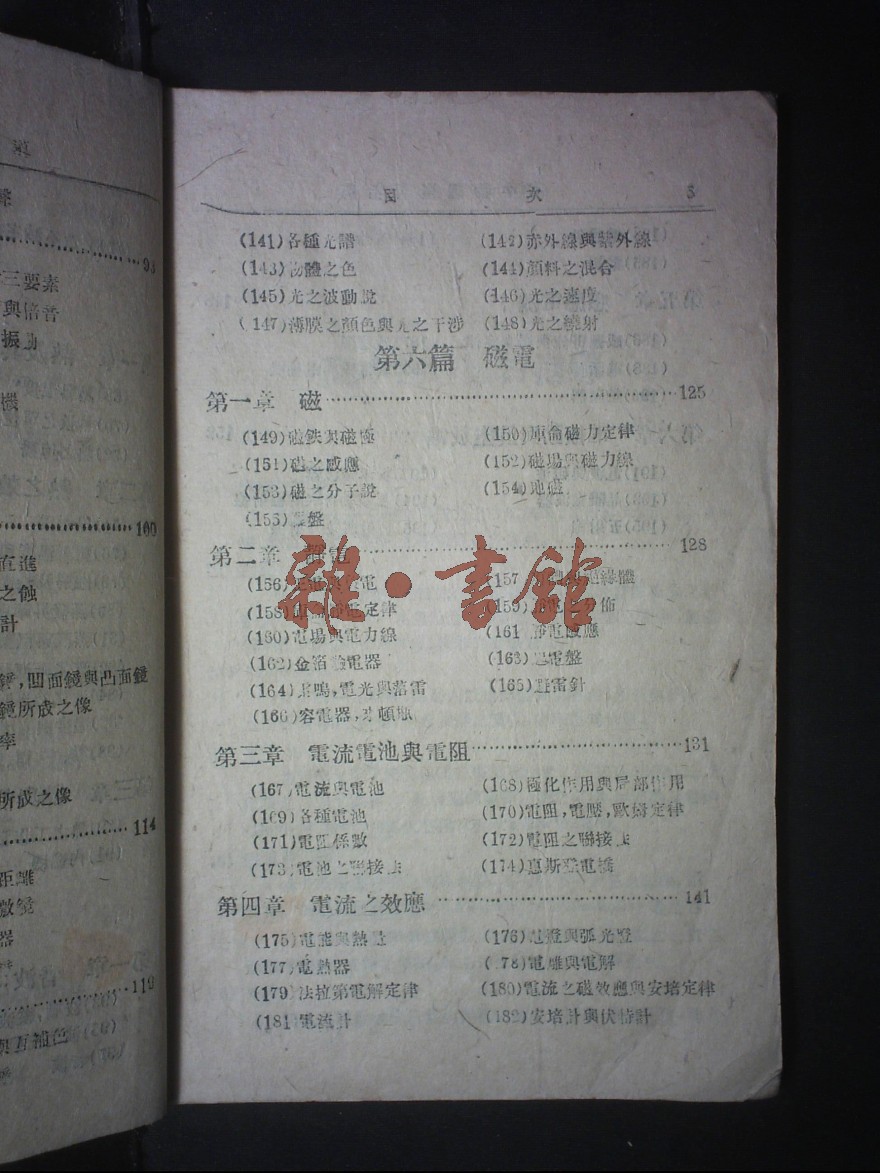 目 次 5
(141)各種光譜 (142)赤外線與紫外線
(143)物體之色 (144)顏料之混合
(145)光之波動說 (146)光之速度
(147)薄膜之顏色與光之干涉 (148)光之繞射
第六篇 磁電
第一章 磁 125
(149)磁鉄與磁極 (150)庫侖磁力定律
(151)磁之感應 (152)磁場與磁力線
(153)磁之分子說 (154)地磁
(155) 盤
第二章 靜電 128
(156) 電 (157) 絕緣體
(158) 定律 (159) 分佈
(160)電場與電力線 (161 靜電感應
(162)金箔驗電器 (163)起電盤
(164)雷鳴,電光與落雷 (165)避雷針
(166)容電器,來頓瓶
第三章 電流電池與電阻 131
(167)電流與電池 (168)極化作用與局部作用
(169)各種電池 (170)電阻,電壓,歐姆定律
(171)電阻係數 (172)電阻之聯接法
(173)電池之聯接法 (174)惠斯登電橋
第四章 電流之效應 141
(175)電能與熱量 (176)電燈與弧光燈
(177)電熱器 (178)電離與電解
(179)法拉第電解定律 (180)電流之磁效應與安培定律
(181)電流計 (182)安培計與伏特計
雜·書館
93
三要素
與倍音
振動
機
100
直進
之蝕
計
鏡,凹面鏡與凸面鏡
鏡所成之像
率
所成之像
114
距離
微鏡
器
119
與互補色